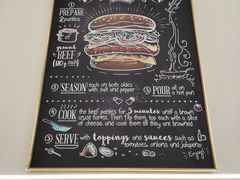 1 PREPARE
2 patties
ground
BEEF
(110g each)
2 SEASON each on both sides
with salt and pepper
3 POUR oil on
a hot pan
4 COOK the beef patties for 3 minutes until a brown
crust forms. Then flip them, top each with a slice
of cheese, and cook them till they are browned
5 SERVE with toppings and sauces such as
tomatoes, onions and jalapeno
Enjoy!